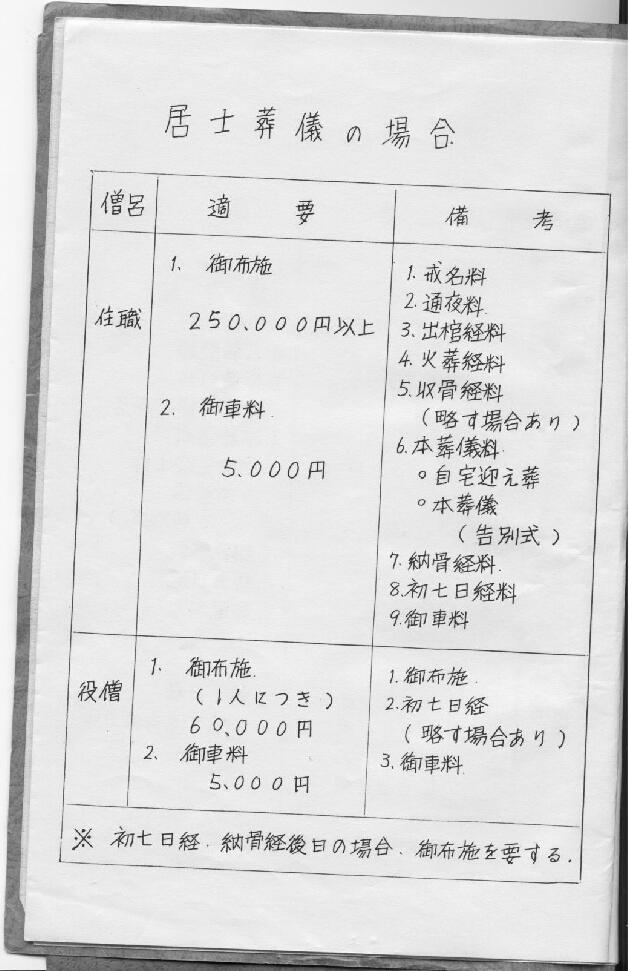 居士葬儀の場合
僧呂 適要 備考
住職
1、御布施
250,000円以上
2、御車料
5,000円
1.戒名料
2.通夜料
3.出棺経料
4.火葬経料
5.収骨経料
(略す場合あり)
6.本葬儀料
○自宅迎え葬
○本葬儀
(告別式)
7.納骨経料.
8.初七日経料
9.御車料
役僧
1、御布施.
(1人につき)
60,000円
2、御車料
5,000円
1.御布施.
2.初七日経
(略す場合あり)
3.御車料.
※ 初七日経.納骨経後日の場合、御布施を要する.